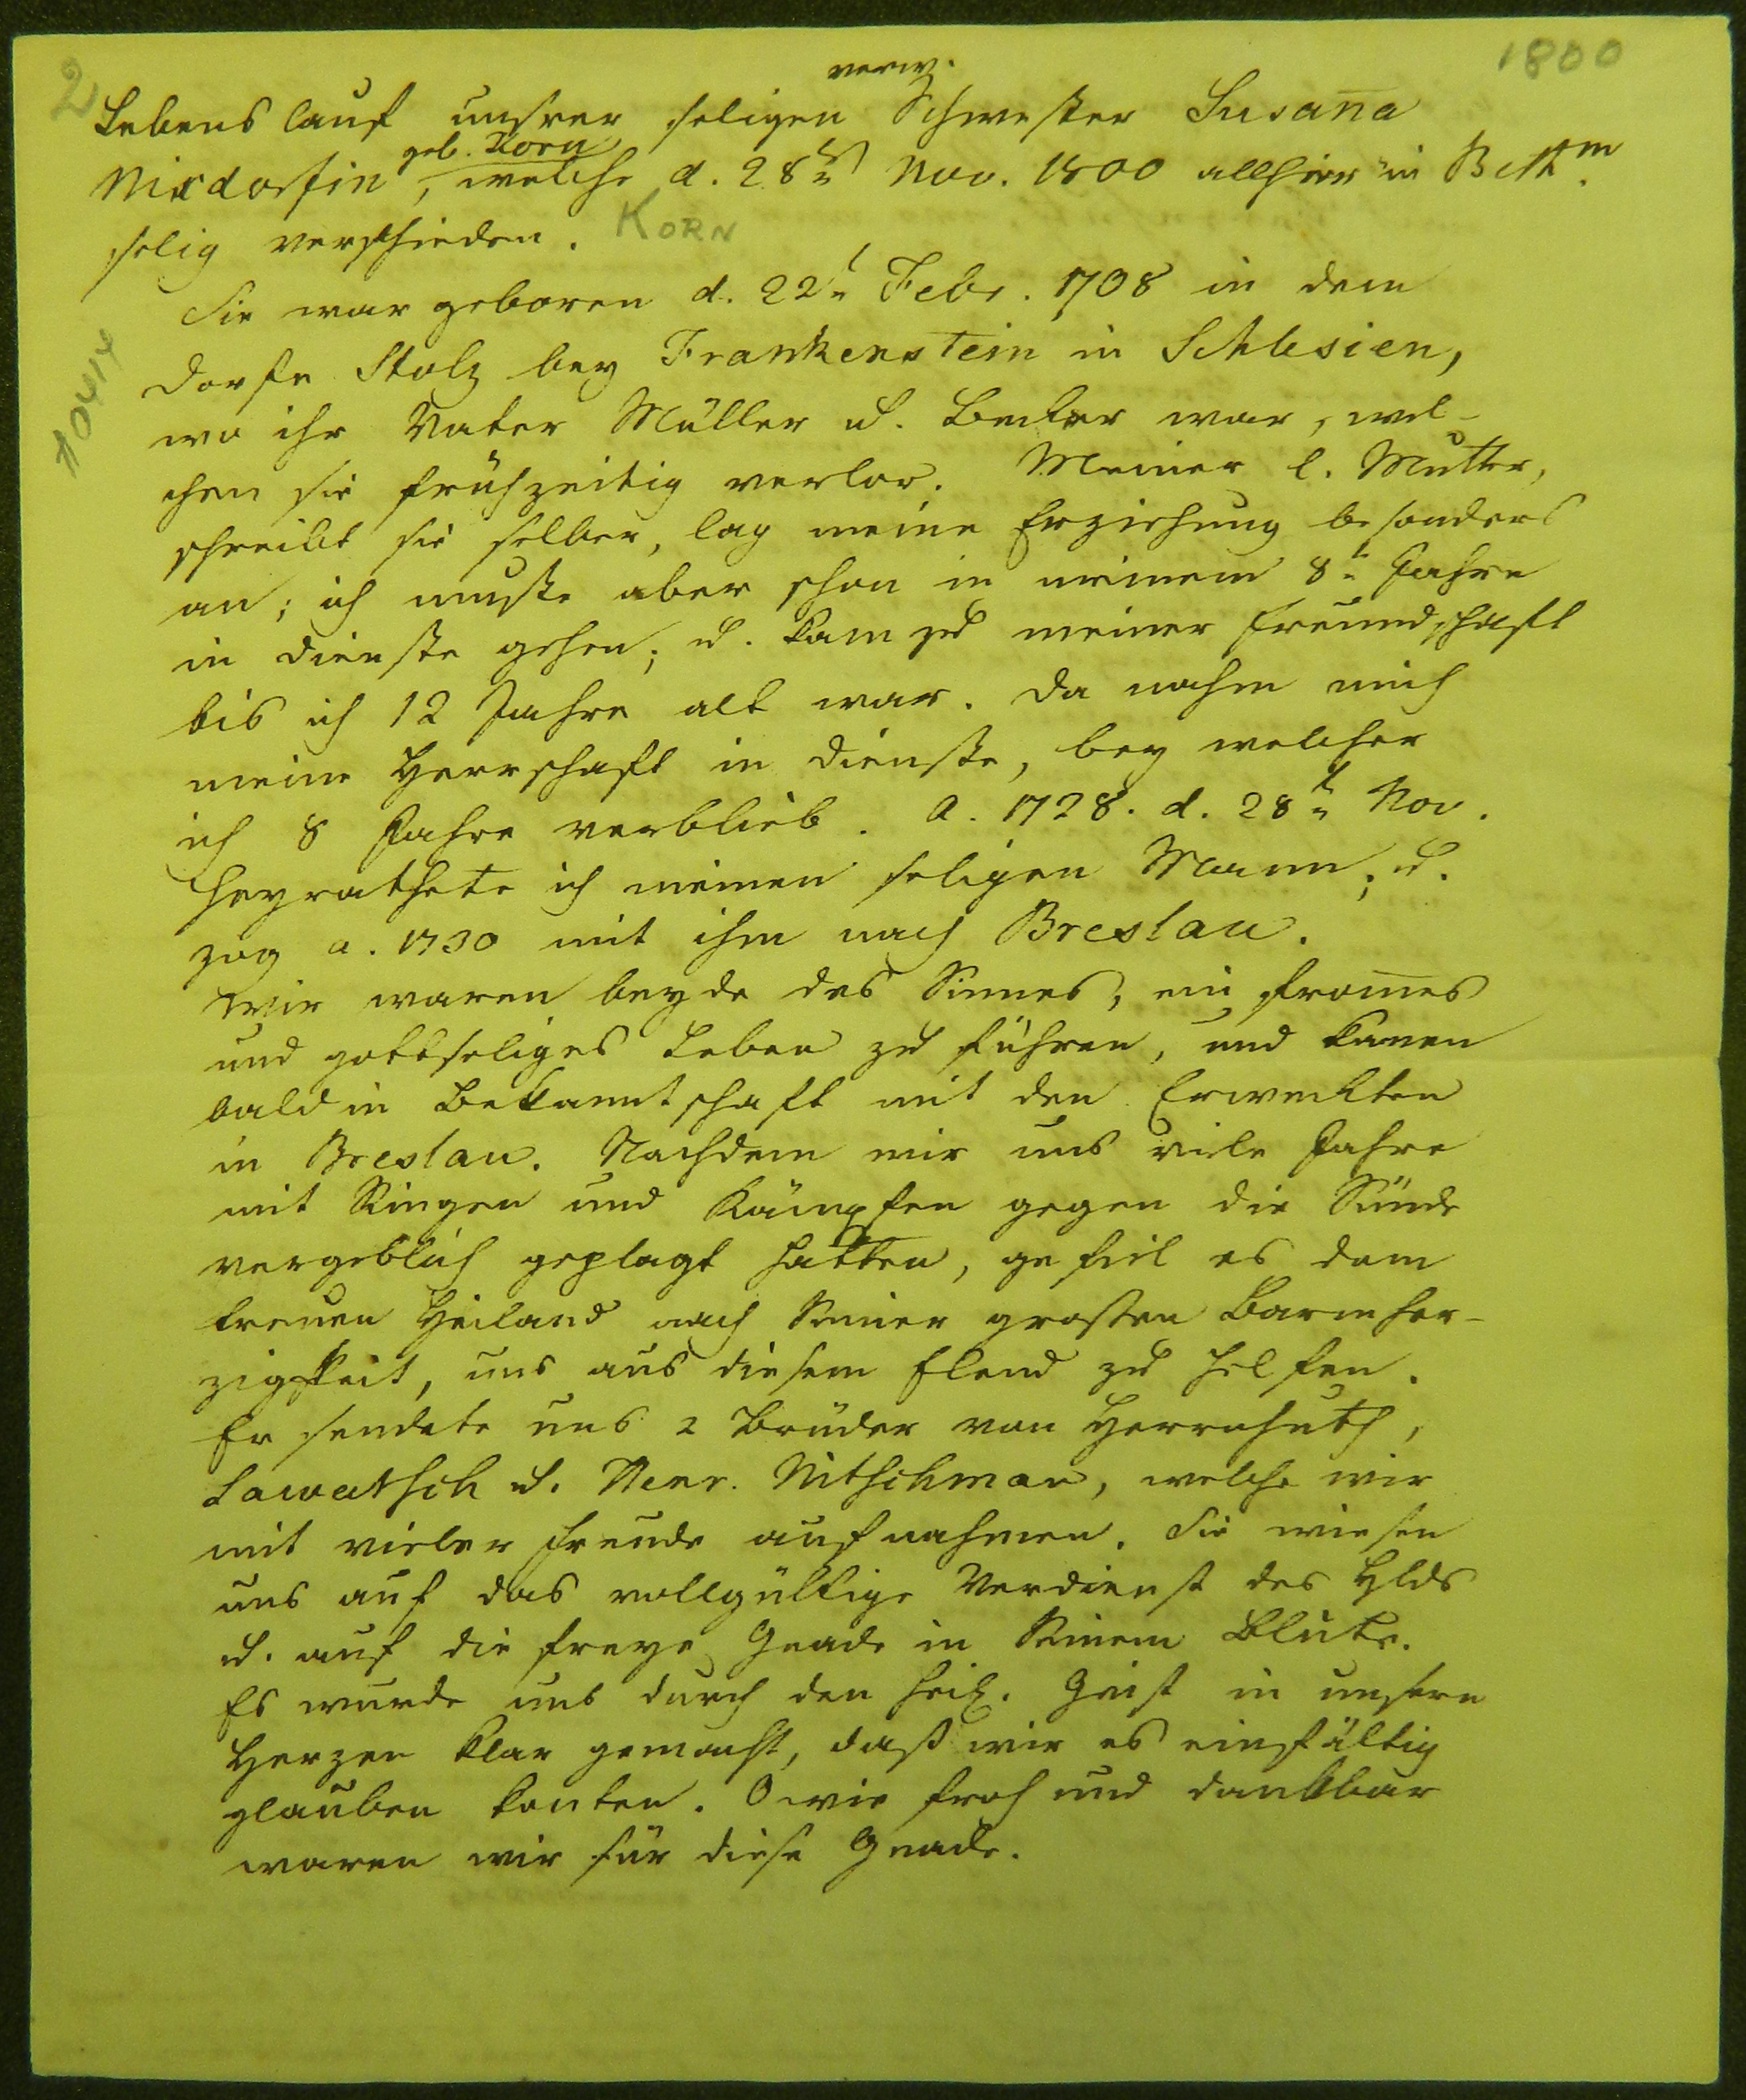 2
1800
verw.
Lebenslauf unsrer seligen Schwester Susan̄a
geb. Korn
Nixdorfin, welche d. 28ⁿ Nov. 1800 allhier in Bethm.
selig verschieden. KORN
Sie war geboren d. 22ᵗ Febr. 1708 in dem
Dorfe Stolz bey Frankenstein in Schlesien,
wo ihr Vater Müller u. Becker war, wel-
chen sie frühzeitig verlor. Meiner l. Mutter,
schreibt sie selber, lag meine Erziehung besonders
an; ich mußte aber schon in meinem 8ᵗ Jahre
in Dienste gehen; u. kam zu meiner Freundschaft
bis ich 12 Jahre alt war. Da nahm mich
meine Herrschaft in Dienste, bey welcher
ich 8 Jahre verblieb. A. 1728. d. 28ᵗ Nov.
heyrathete ich meinen seligen Mann; u.
zog a. 1730 mit ihm nach Breslau.
Wir waren beyde des Sinnes, ein from̄es
und gottseliges Leben zu führen, und kamen
bald in Bekanntschaft mit den Erweckten
in Breslau. Nachdem wir uns viele Jahre
mit Ringen und Kämpfen gegen die Sünde
vergeblich geplagt hatten, gefiel es dem
treuen Heiland nach Seiner grossen Barmher-
zigkeit, uns aus diesem Elend zu helfen.
Er sendete uns 2 Brüder von Herrnhuth,
Lawatsch u. Henr. Nitschman, welche wir
mit vieler Freude aufnahmen. Sie wiesen
uns auf das vollgültige Verdienst des Hlds
u. auf die freye Gnade in Seinem Blute.
Es wurde uns durch den heil. Geist in unsern
Herzen klar gemacht, daß wir es einfältig
glauben konten. O wie froh und dankbar
waren wir für diese Gnade.